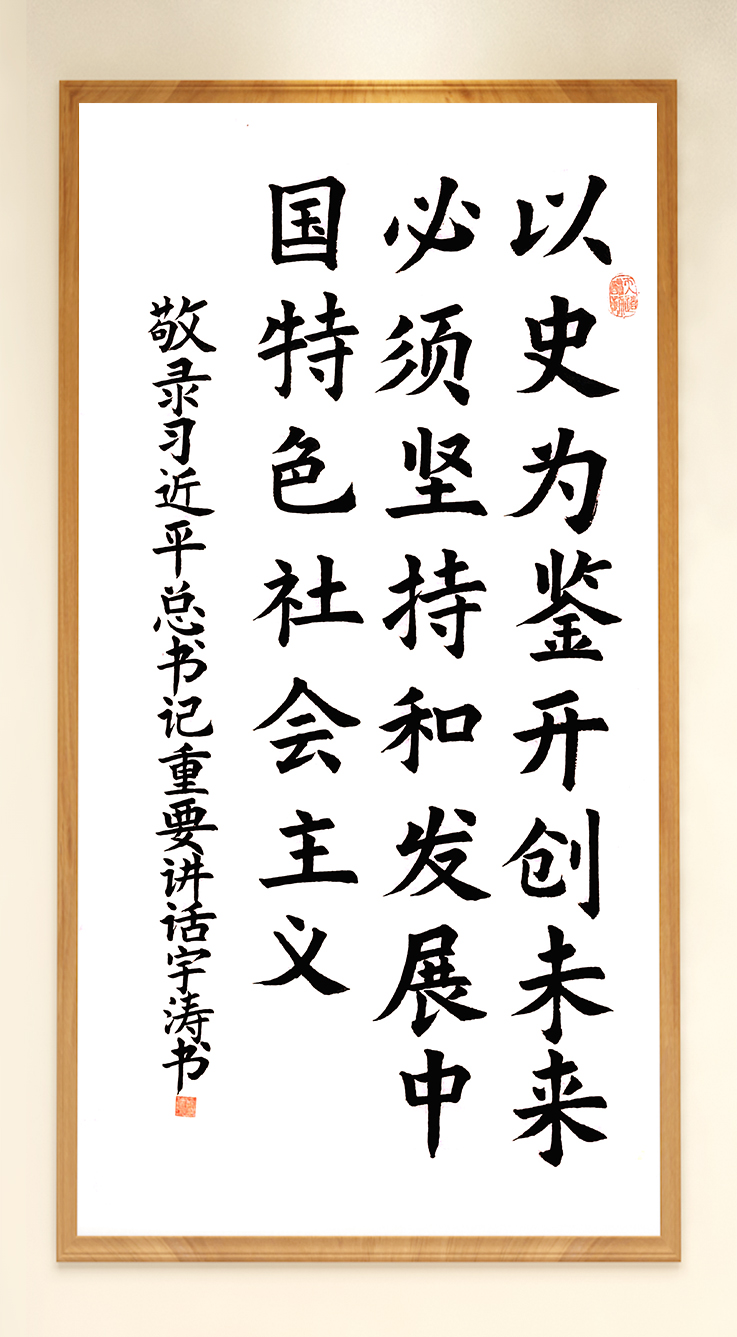 以史为鉴开创未来
必须坚持和发展中
国特色社会主义
敬录习近平总书记重要讲话宇涛书